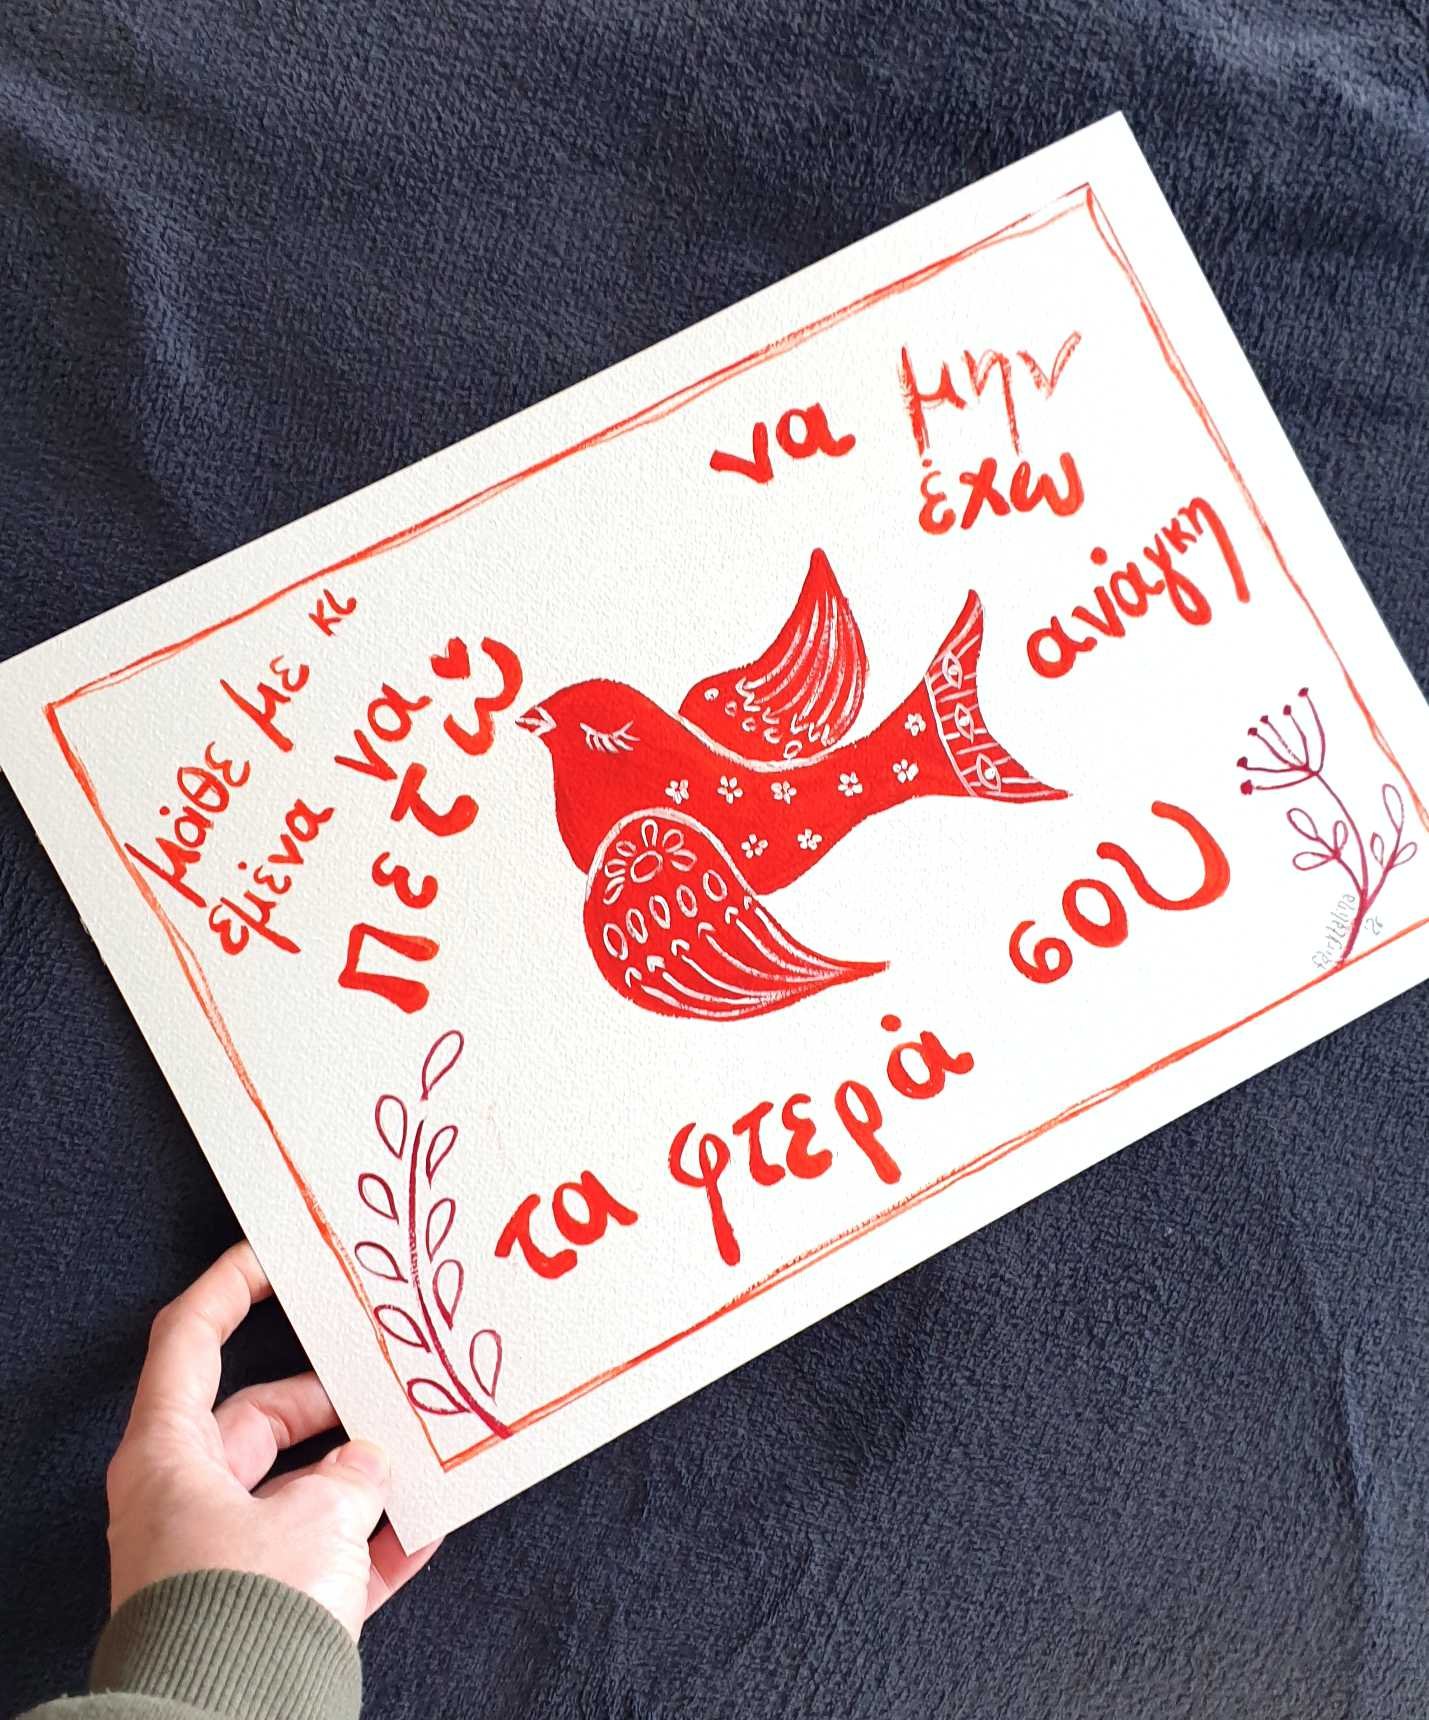 μάθε με κι
εμένα να
πετώ
να μην
έχω
ανάγκη
τα φτερά
σου